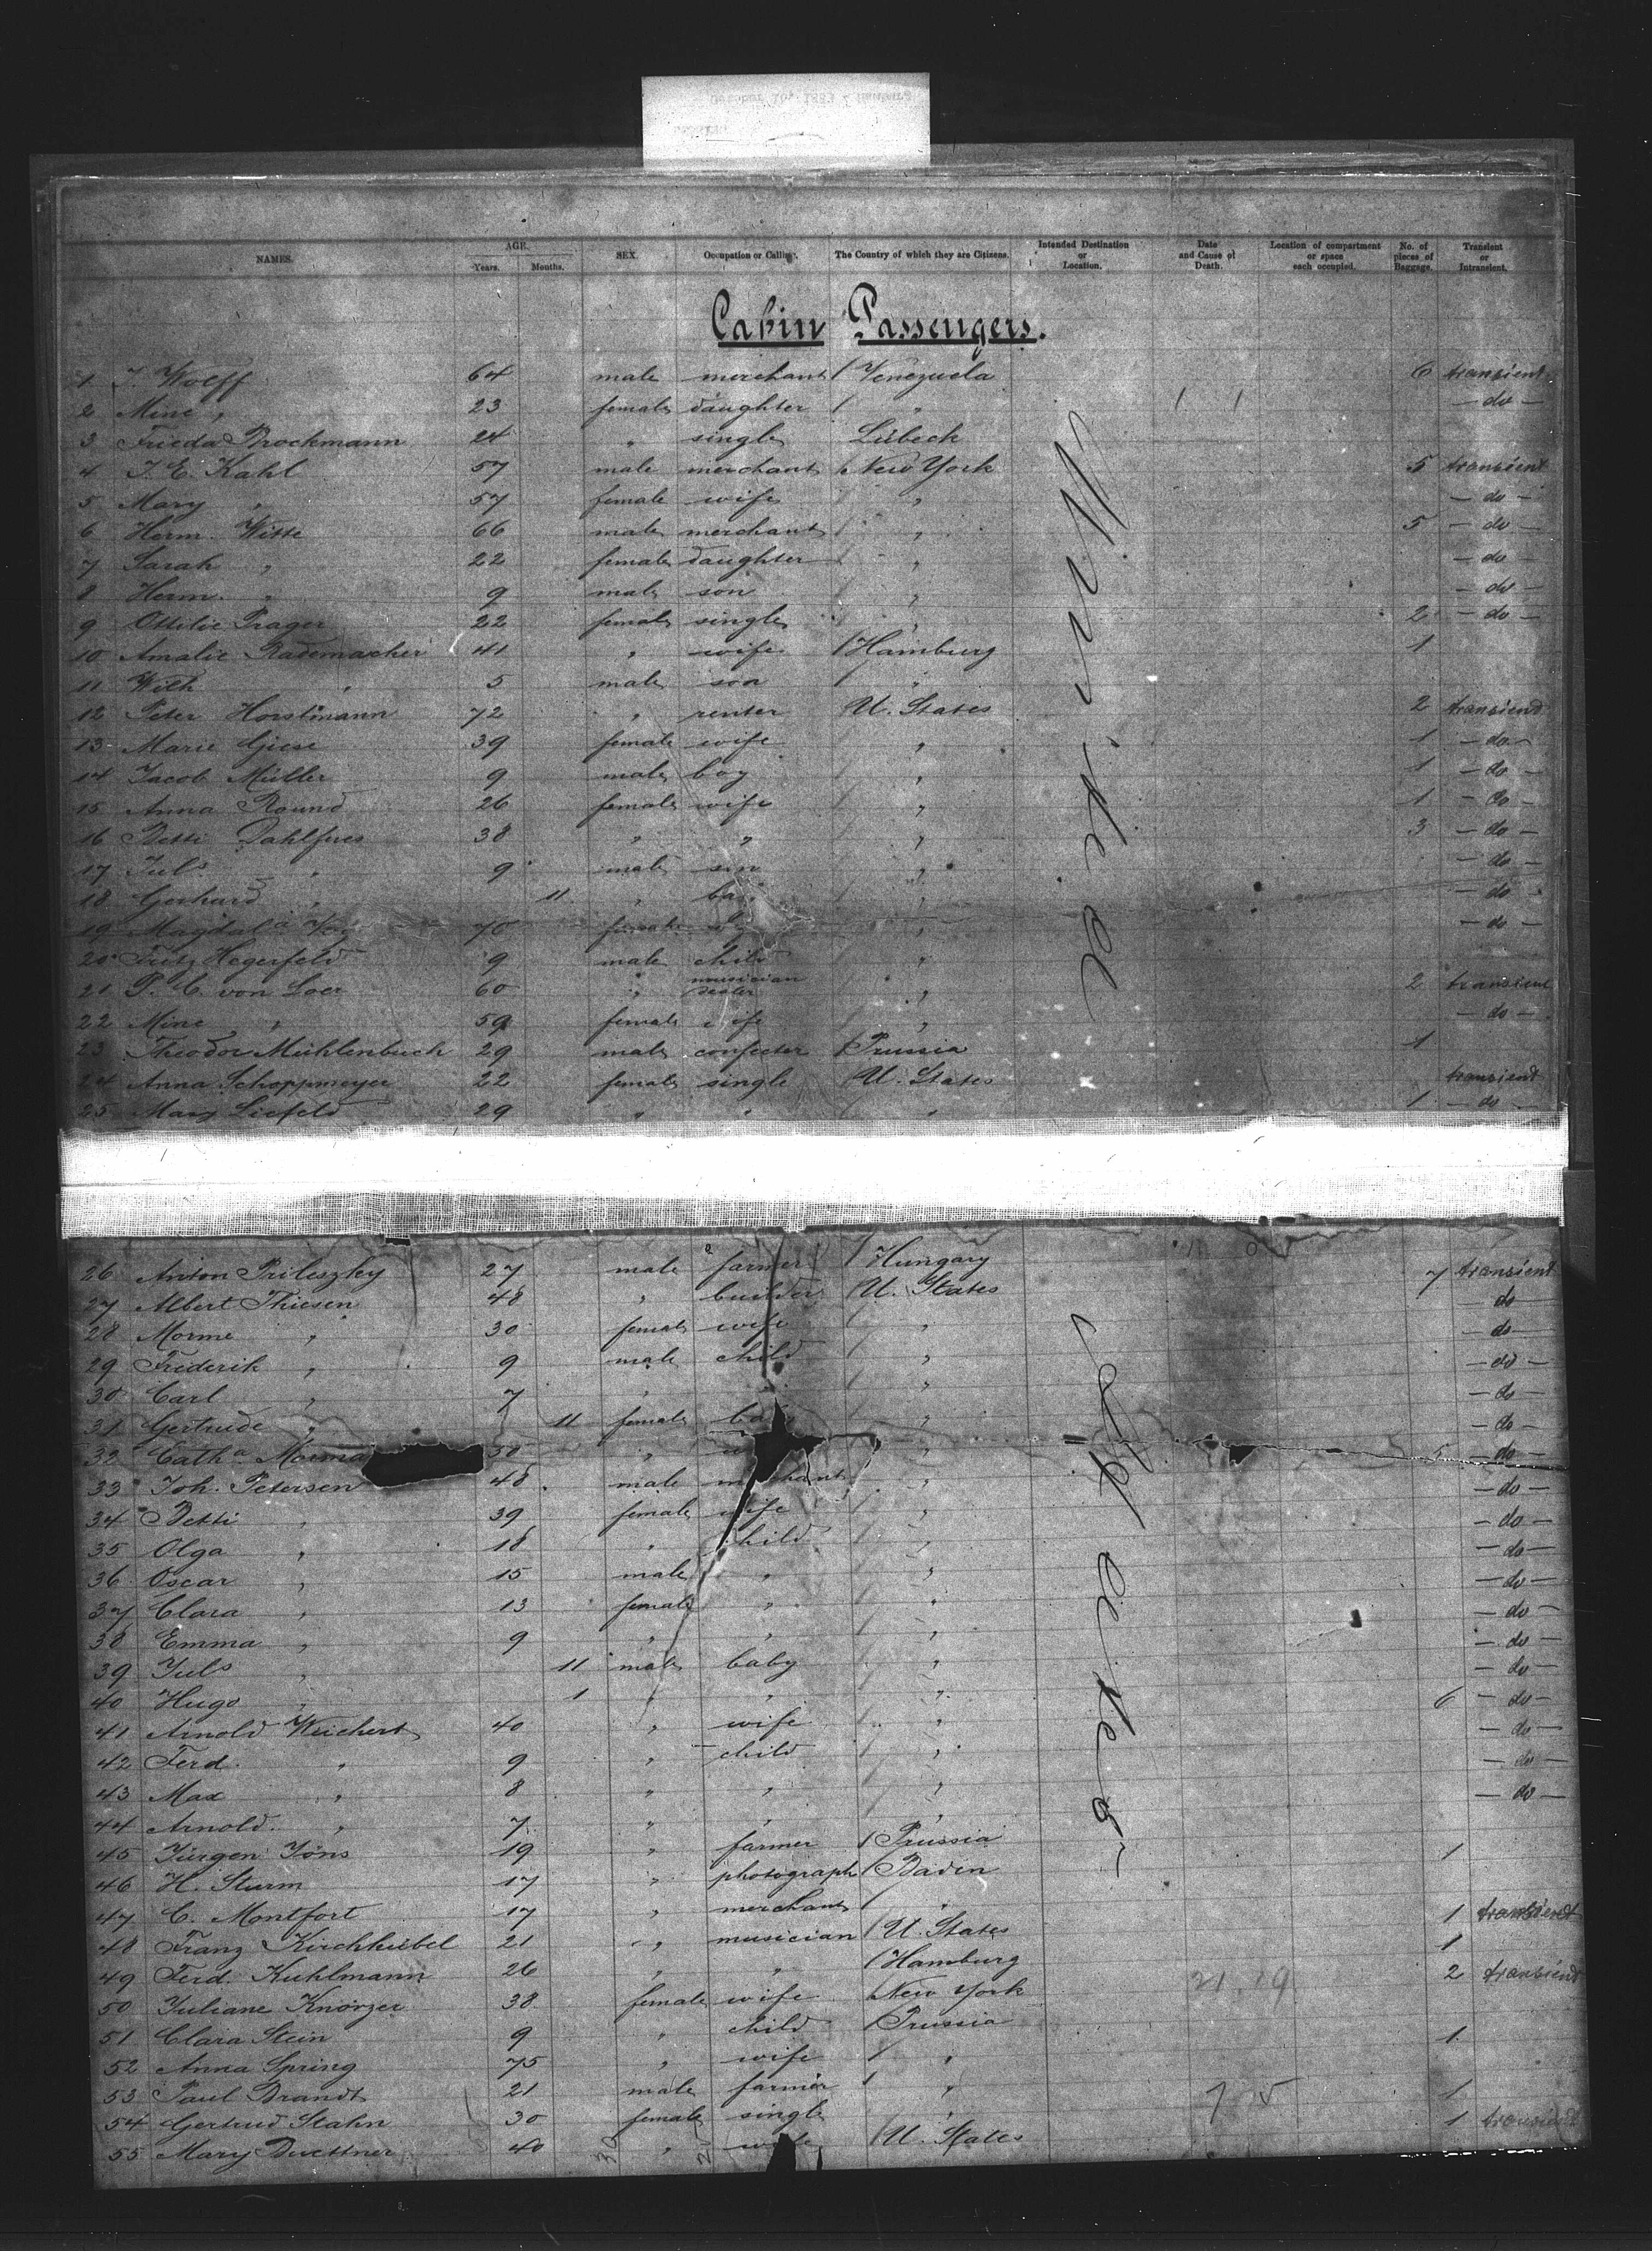 NAMES. AGE. Years. Months. SEX. Occupation or Calling. The Country of which they are Citizens. Intended Destination or Location. Date and Cause of Death. Location of compartment or space each occupied. No. of pieces of Baggage. Transient or Intransient.
Cabin Passengers.
1 J. Wolff 64 male merchant Venezuela 6 transient
2 Mine " 23 female daughter " - do -
3 Frieda Brockmann 24 " single Lübeck
4 J. E. Kahl 57 male merchant New York 5 transient
5 Mary " 57 female wife " - do -
6 Herm. Witte 66 male merchant " 5 - do -
7 Sarah " 22 female daughter " - do -
8 Herm. " 9 male son " - do -
9 Ottilie Prager 22 female single " 2 - do -
10 Amalie Rademacher 41 " wife Hamburg 1
11 Wilh " 5 male son "
12 Peter Horstmann 72 " renter U. States 2 transient
13 Marie Giese 39 female wife " 1 - do -
14 Jacob Müller 9 male boy " 1 - do -
15 Anna Round 26 female wife " 1 - do -
16 Betti Dahlfues 38 " " " 3 - do -
17 Juls " 9 male son " - do -
18 Gerhard " 11 " " - do -
19 Magdala 70 female " - do -
20 Fritz Hegerfeld 9 male child "
21 P. C. von Loer 60 " musician " 2 transient
22 Mine " 59 female wife " - do -
23 Theodor Mühlenbuch 29 male confecter Prussia 1
24 Anna Schoppmeyer 22 female single U. States transient
25 Mary Liefeld 29 " " " 1 - do -
26 Anton Prileszky 27 male farmer Hungary 7 transient
27 Albert Thiesen 48 " builder U. States - do -
28 Morme " 30 female wife " - do -
29 Friderik " 9 male child " - do -
30 Carl " 7 " " - do -
31 Gertrude " 11 female baby " - do -
32 Catha. 50 " " 5 - do -
33 Joh. Petersen 48 male merchant " - do -
34 Betti " 39 female wife " - do -
35 Olga " 18 " child " - do -
36 Oscar " 15 male " " - do -
37 Clara " 13 female " " - do -
38 Emma " 9 " " " - do -
39 Juls " 11 male baby " - do -
40 Hugo " 1 " " " 6 - do -
41 Arnold Weichert 40 " wife " - do -
42 Ferd. " 9 " child " - do -
43 Max " 8 " " " - do -
44 Arnold. " 7 " " "
45 Jürgen Jöns 19 " farmer Prussia 1
46 H. Sturm 17 " photograph Baden
47 C. Montfort 17 " merchant " 1 transient
48 Franz Kirchhübel 21 " musician U. States 1
49 Ferd. Kuhlmann 26 " " Hamburg 2 transient
50 Juliane Knörzer 38 female wife New York
51 Clara Stein 9 " child Prussia 1.
52 Anna Spring 75 " wife "
53 Paul Brandt 21 male farmer " 1
54 Gertrud Stahn 30 female single " 1 transient
55 Mary Duettner 40 " wife U. States